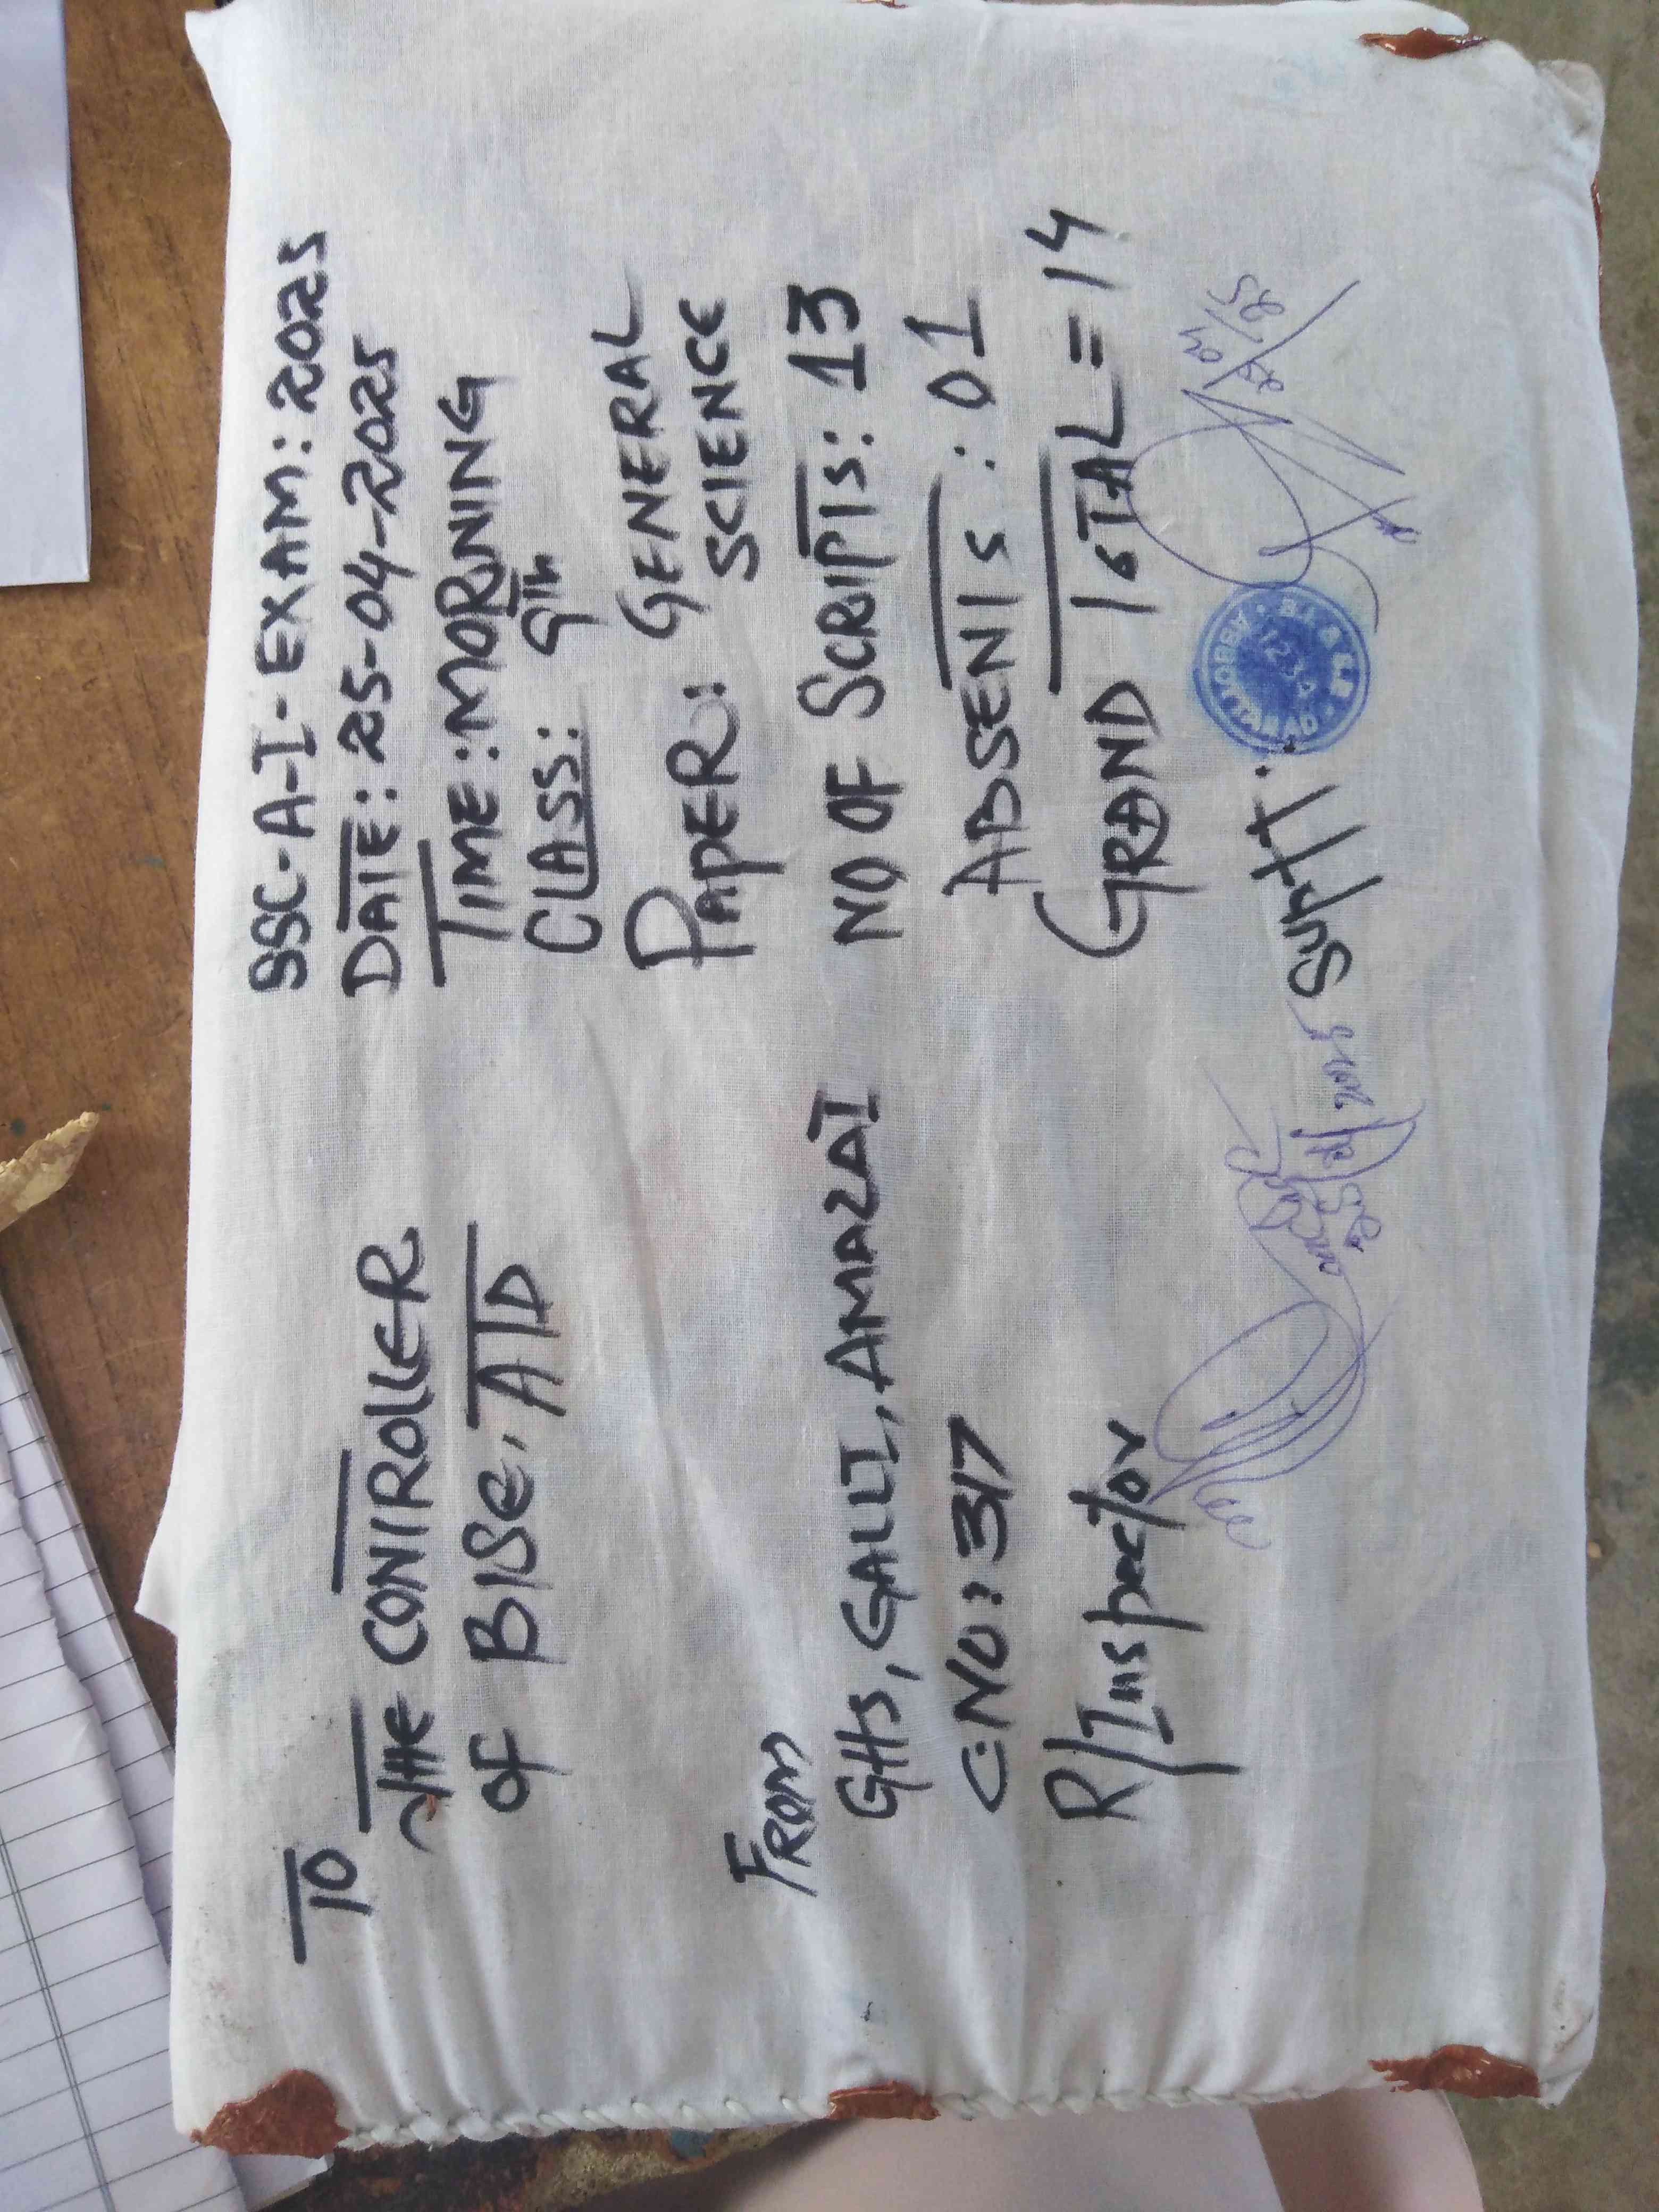 TO
THE CONTROLLER
OF BISE, ATD
FROM
GHS, GALLI, AMAZAI
C:NO: 317
R/Inspector
SSC-A-I-EXAM: 2025
DATE: 25-04-2025
TIME: MORNING
CLASS: 9th
PAPER: GENERAL
SCIENCE
NO OF SCRIPTS: 13
ABSENTS: 01
GRAND TOTAL = 14
Supt.
25/04/25